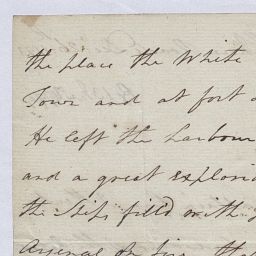 the place the White
Town and at fort
He left the harbour
and a great explosi
the Ships fill'd with
Arsenal on fire the